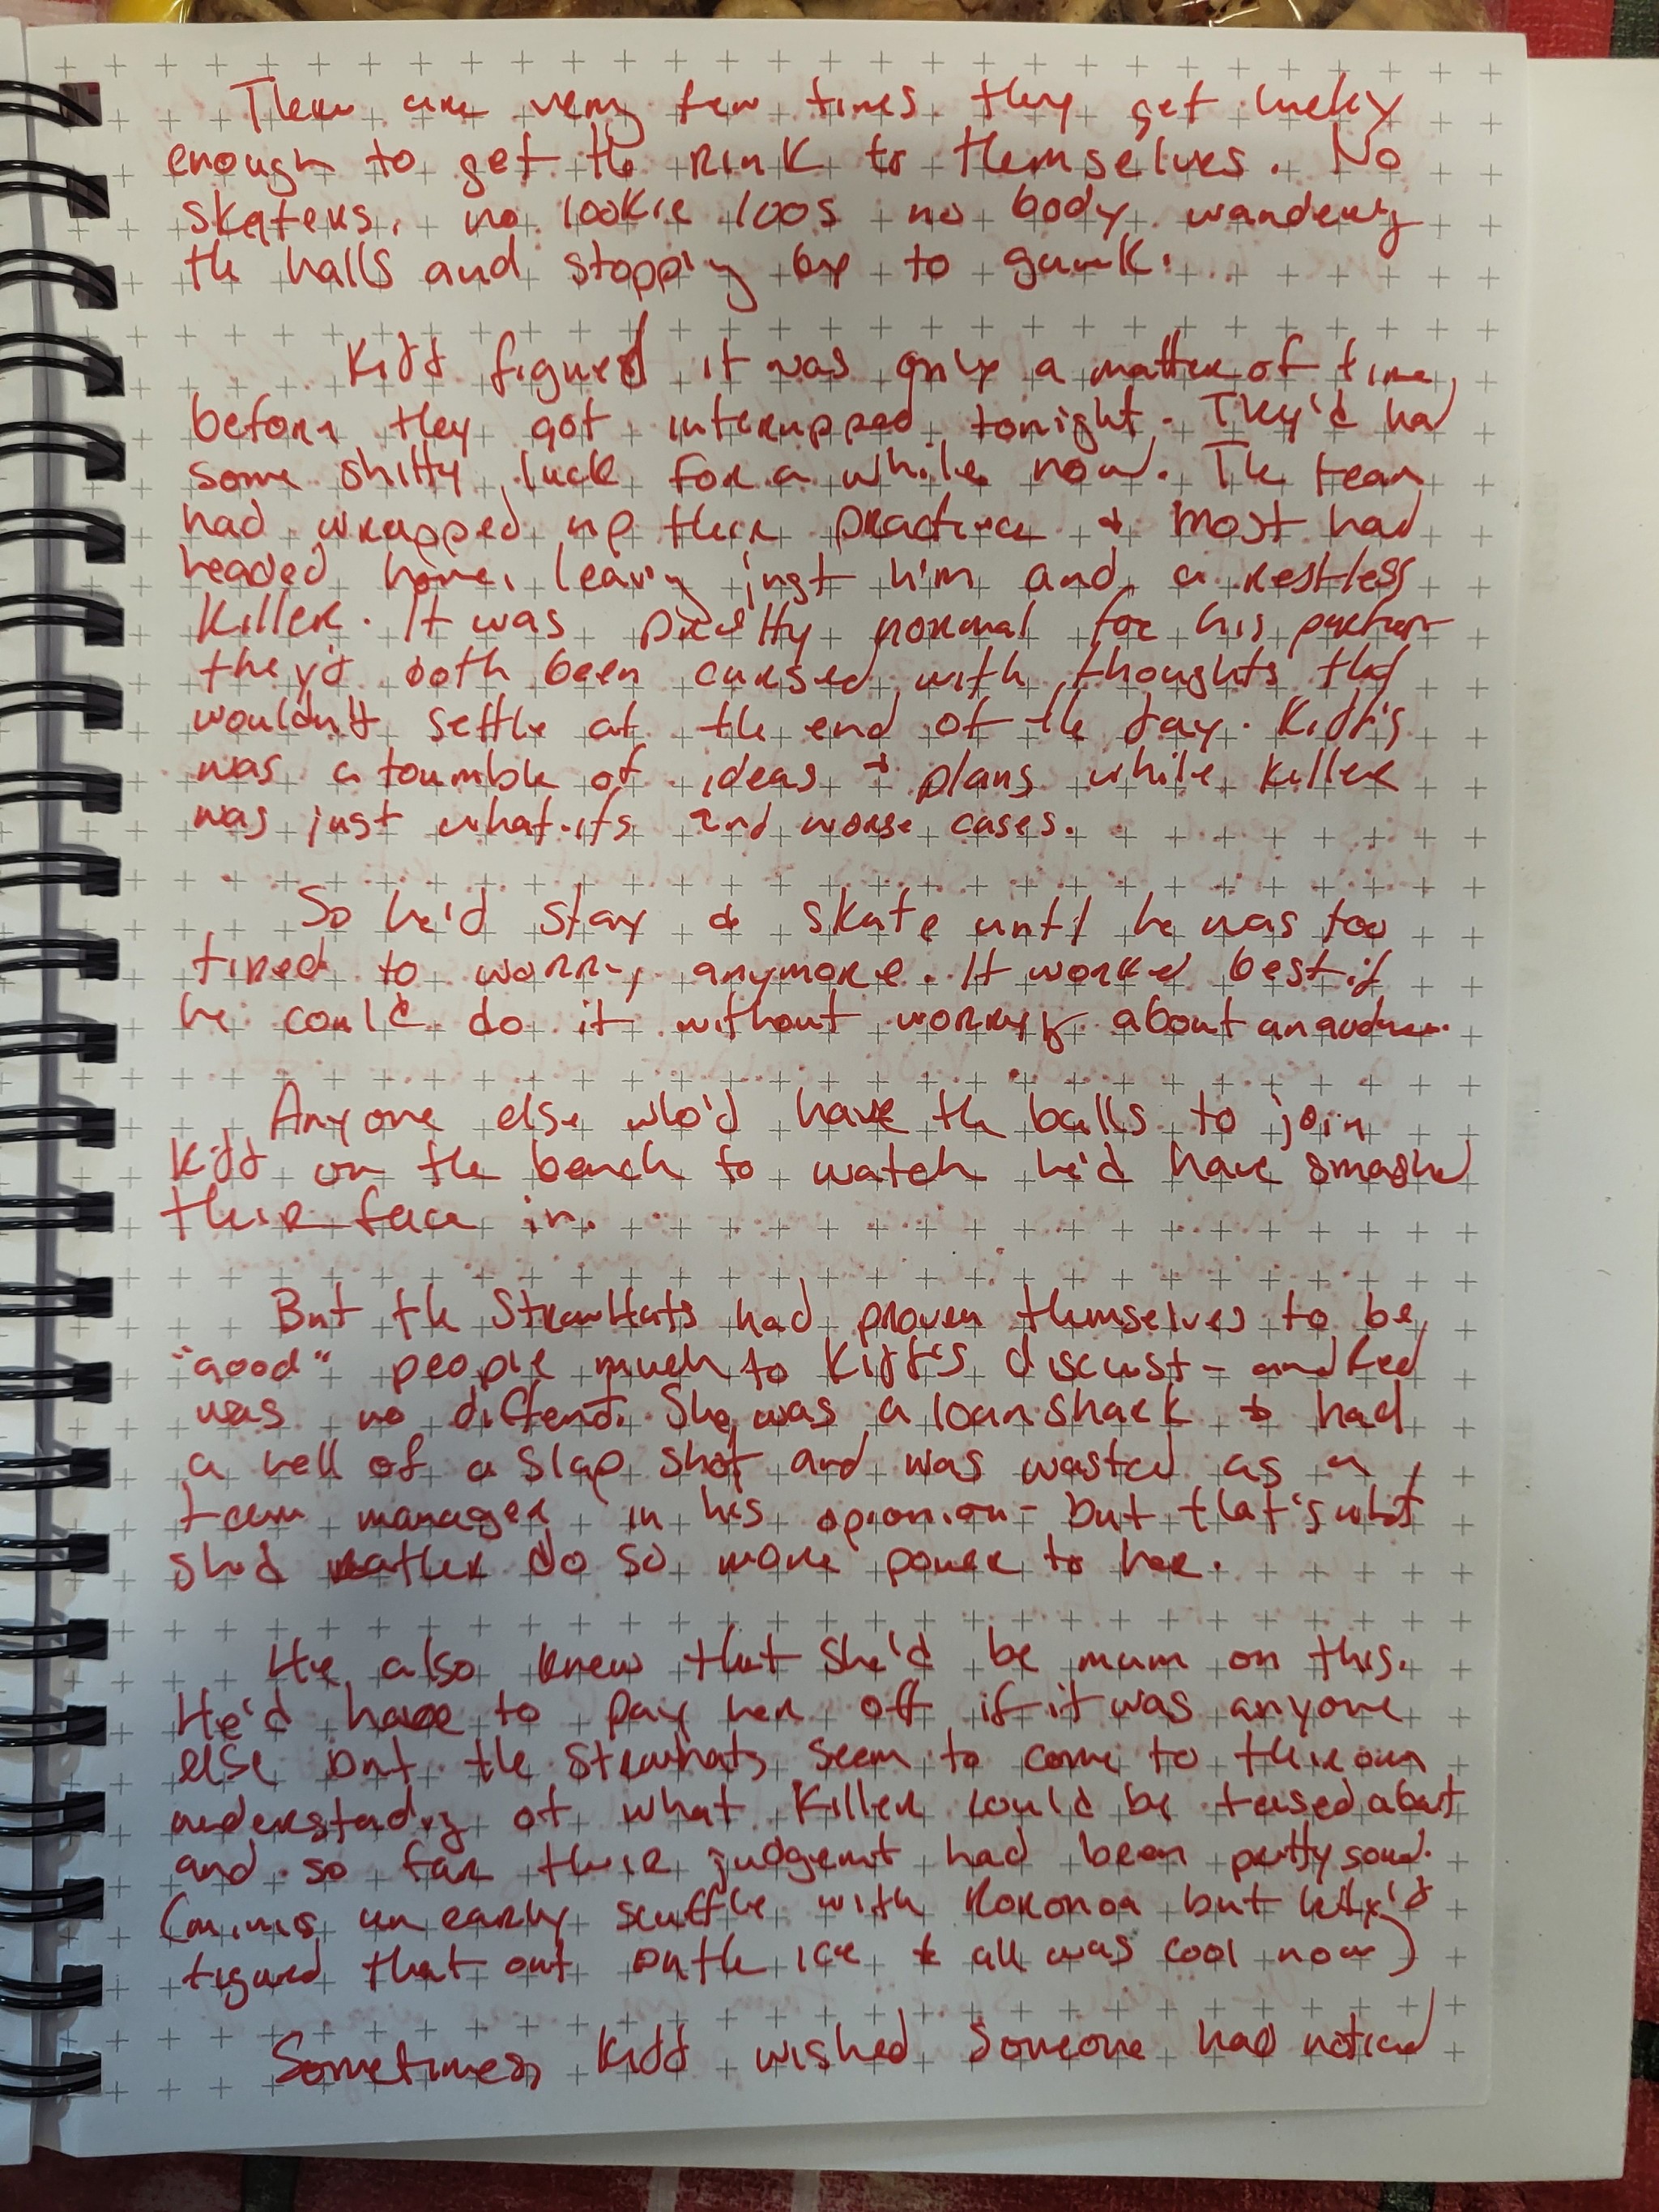 There are very few times they get lucky
enough to get the rink to themselves. No
skaters, no lookie loos no body wandering
the halls and stopping by to gawk.
Kidd figured it was only a matter of time
before they got interupped tonight. They'd had
some shitty luck for a while now. The team
had wrapped up their practice & most had
headed home, leaving just him and a restless
Killer. It was pretty normal for his partner
they'd both been cursed with thoughts that
wouldn't settle at the end of the day. Kidd's
was a toumble of ideas & plans while Killer
was just what-ifs and worse cases.
So he'd stay & skate until he was too
tired to worry anymore. It worked best if
he could do it without worrying about an audience.
Anyone else who'd have the balls to join
Kidd on the bench to watch he'd have smashed
their face in.
But the StrawHats had proven themselves to be
"good" people much to Kidd's discust - and Red
was no diffent. She was a loan shark & had
a hell of a slap shot and was wasted as a
team manager in his opionion - but that's what
she'd rather do so more power to her.
He also knew that she'd be mum on this.
He'd have to pay her off if it was anyone
else but the strawhats seem to come to their own
understading of what Killer could be teased about
and so far their judgemt had been pretty sound.
(minus an early scuffle with Roronoa but they'd
figured that out on the ice & all was cool now)
Sometimes Kidd wished someone had noticed